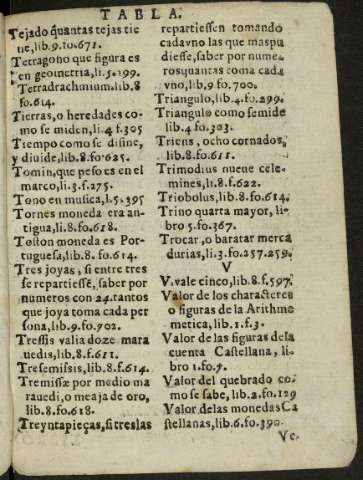 TABLA.
Tejado quantas tejas tie
ne, lib.9.fo.671.
Tetragono que figura es
en geometria, li.5.199.
Tetradrachmium. lib.8
fo.614.
Tierras, o heredades co-
mo se miden, li.4 f.305
Tiempo como se difine,
y diuide, lib.8.fo.625.
Tomin, que peso es en el
marco, li.3.f.275.
Tono en musica, l.5.395
Tornes moneda era an-
tigua, li.8.fo.618.
Toston moneda es Por-
tuguesa, lib.8.fo.614.
Tres joyas, si entre tres
se repartiesse, saber por
numeros con 24.tantos
que joya toma cada per
sona, lib.9.fo.702.
Tressis valia doze mara
uedis, lib.8.f.611.
Tresemissis, lib.8.f.614.
Tremissæ por medio ma
rauedi, o meaja de oro,
lib.8.fo.618.
Treynta pieças, si tres las
repartiessen tomando
cada vno las que mas pu
diesse, saber por nume-
ros quantas toma cada
vno, lib.9 fo.700.
Triangulo, lib.4.fo.299.
Triangulo como se mide
lib.4.fo.303.
Triens, ocho cornados,
lib.8.fo.611.
Trimodius nueue cele-
mines, li.8.f.622.
Triobolus, lib.8.fo.614.
Trino quarta mayor, li-
bro 5.fo.367.
Trocar, o baratar merca
durias, li.3.fo.257.259.
V
V. vale cinco, lib.8.f.597.
Valor de los characteres
o figuras de la Arithme
metica, lib.1.f.3.
Valor de las figuras dela
cuenta Castellana, li-
bro 1.fo.7.
Valor del quebrado co-
mo se sabe, lib.2.fo.129
Valor de las monedas Ca
stellanas, lib.6.fo.390.
Vc.